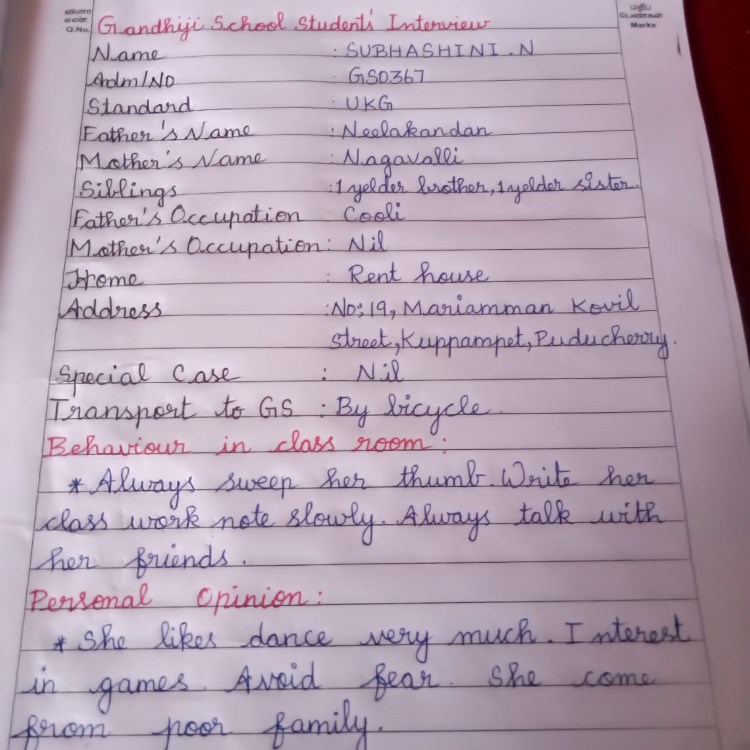 வினா
எண்.
Q.No.
மதிப்
பெண்கள்
Marks
Gandhiji School Students' Interview
Name : SUBHASHINI.N
Adm/NO : GS0367
Standard : UKG
Father's Name : Neelakandan
Mother's Name : Nagavalli
Siblings : 1 yelder brother, 1 yelder sister.
Father's Occupation Cooli
Mother's Occupation : Nil
Home : Rent house
Address : No: 19, Mariamman Kovil
Street, Kuppampet, Puducherry.
Special Case : Nil
Transport to GS : By bicycle.
Behaviour in class room :
* Always sweep her thumb. Write her
class work note slowly. Always talk with
her friends.
Personal Opinion :
* She likes dance very much. Interest
in games. Avoid fear. She come
from poor family.